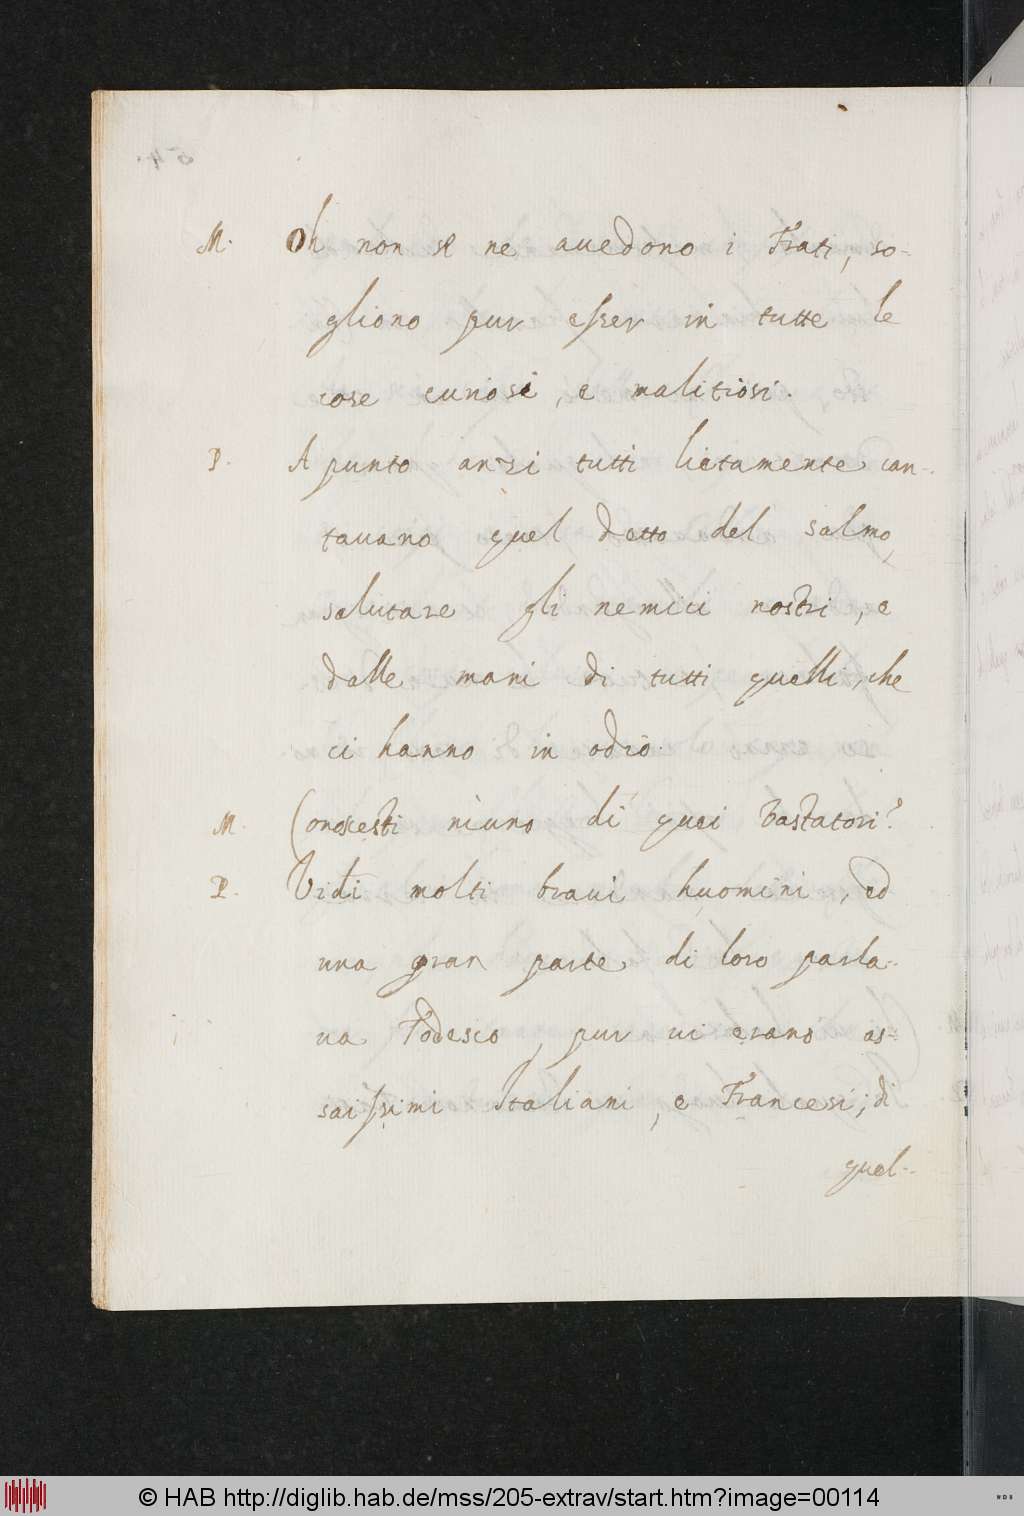 M. Oh non se ne auedono i Frati, so-
gliono pur esser in tutte le
cose curiosi, e malitiosi.
P. A punto anzi tutti lietamente can-
tauano quel detto del salmo,
salutare gli nemici nostri, e
dalle mani di tutti quelli, che
ci hanno in odio.
M. Conoscesti niuno di quei bastatori?
P. Vidi molti braui huomini, ed
una gran parte di loro parla-
ua Todesco, pur ui erano as-
saissimi Italiani, e Francesi, di
quel-
© HAB http://diglib.hab.de/mss/205-extrav/start.htm?image=00114